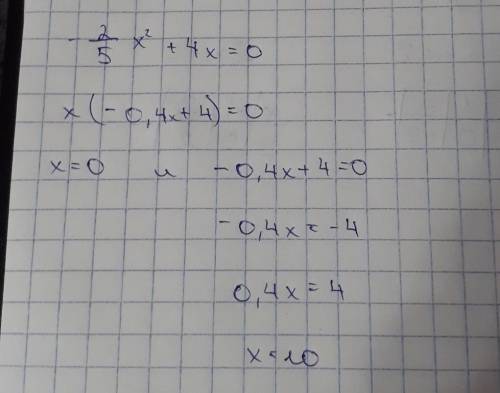 - 2/5 x² + 4x = 0
x (- 0,4x + 4) = 0
x = 0 и - 0,4x + 4 = 0
- 0,4x = - 4
0,4x = 4
x = 10